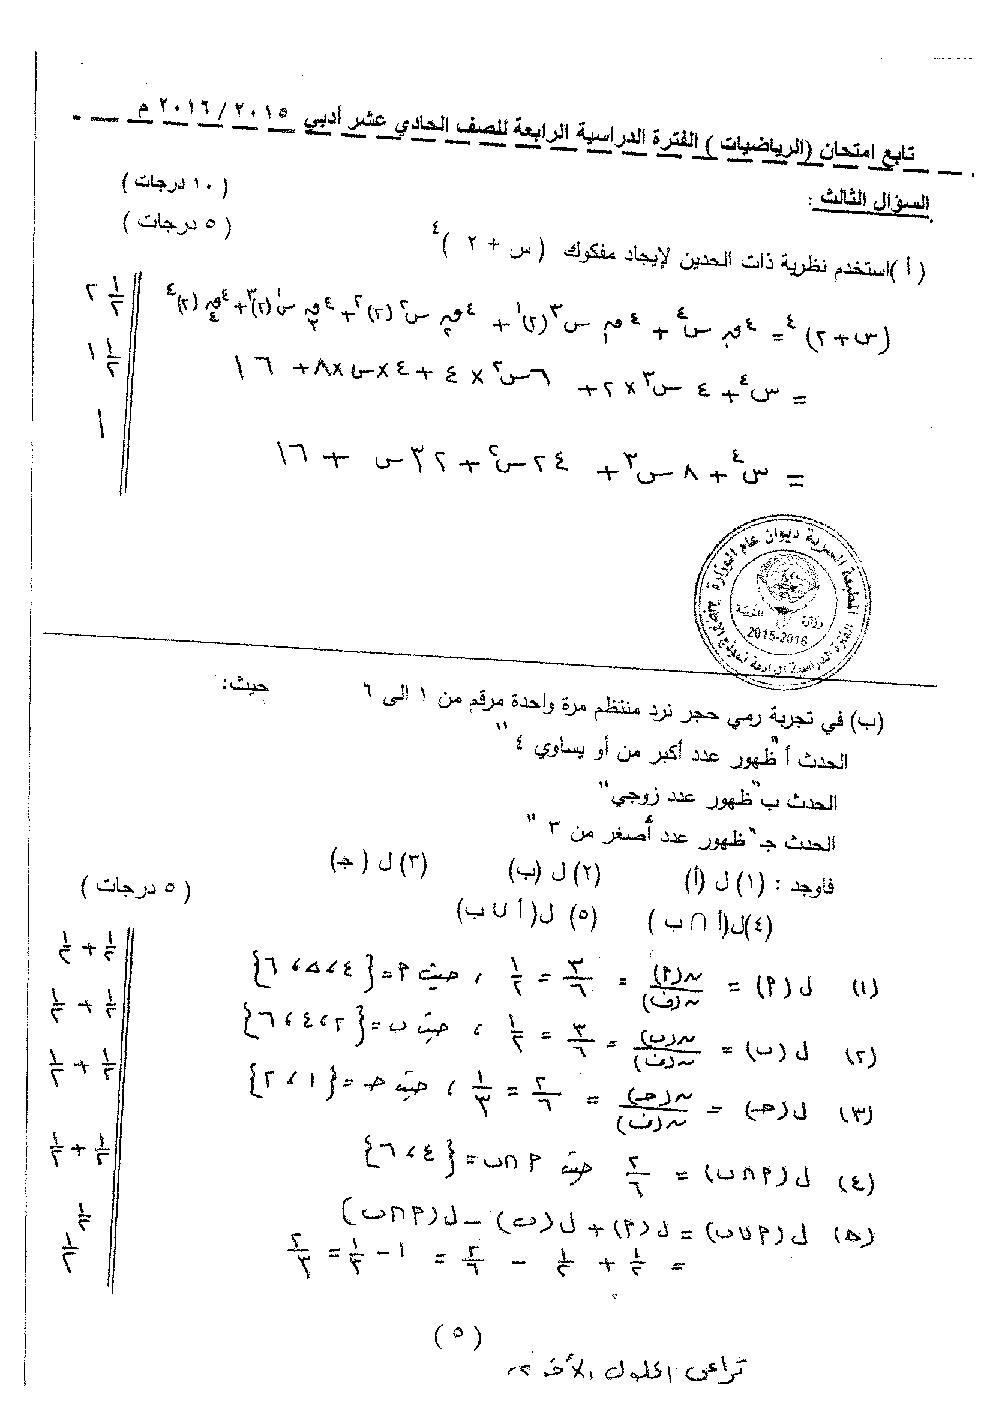 تابع امتحان (الرياضيات) الفترة الدراسية الرابعة للصف الحادي عشر أدبي ٢٠١٥ / ٢٠١٦ م
السؤال الثالث : (١٠ درجات)
(٥ درجات)
(أ) استخدم نظرية ذات الحدين لإيجاد مفكوك (س + ٢)^٤
(س+٢)^٤ = ^٤ق٠ س^٤ + ^٤ق١ س^٣ (٢)^١ + ^٤ق٢ س^٢ (٢)^٢ + ^٤ق٣ س^١ (٢)^٣ + ^٤ق٤ (٢)^٤ ٢ ١/٢
= س^٤ + ٤ س^٣ × ٢ + ٦س^٢ × ٤ + ٤×س×٨ + ١٦ ١ ١/٢
= س^٤ + ٨ س^٣ + ٢٤س^٢ + ٣٢س + ١٦ ١
المطبعة السرية ديوان عام الوزارة
وزارة التربية
2015-2016
الفترة الدراسية الرابعة نموذج الإجابة
(ب) في تجربة رمي حجر نرد منتظم مرة واحدة مرقم من ١ الى ٦ حيث:
الحدث أ "ظهور عدد أكبر من أو يساوي ٤"
الحدث ب "ظهور عدد زوجي"
الحدث جـ "ظهور عدد أصغر من ٣"
فاوجد : (١) ل (أ) (٢) ل (ب) (٣) ل (جـ)
(٥ درجات)
(٤) ل(أ ∩ ب) (٥) ل(أ ∪ ب)
(١) ل (٢) = ن(٢)/ن(ف) = ٣/٦ = ١/٢ ، حيث ٢ = {٤ ، ٥ ، ٦} ١/٢ + ١/٢
(٢) ل (ب) = ن(ب)/ن(ف) = ٣/٦ = ١/٢ ، حيث ب = {٢ ، ٤ ، ٦} ١/٢ + ١/٢
(٣) ل (جـ) = ن(جـ)/ن(ف) = ٢/٦ = ١/٣ ، حيث جـ = {١ ، ٢} ١/٢ + ١/٢
(٤) ل (٢ ∩ ب) = ٢/٦ حيث ٢ ∩ ب = {٤ ، ٦} ١/٢ + ١/٢
(٥) ل (٢ ∪ ب) = ل(٢) + ل(ب) − ل(٢ ∩ ب) ١/٢
= ١/٢ + ١/٢ − ٢/٦ = ١ − ١/٣ = ٢/٣ ١/٢
(٥)
تراعى الحلول الأخرى